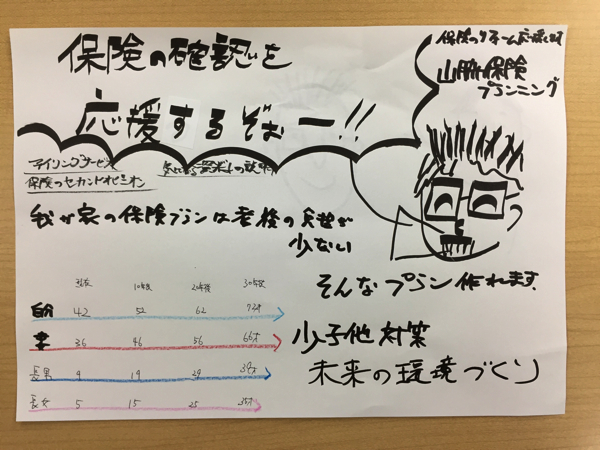 保険の確認を
応援するぞぉー!!
保険のリフォーム応援します
山脈保険
プランニング
保険のセカンドオピニオン
我が家の保険プランは老後の
少ない
そんなプラン作れます
現在 10年後 20年後 30年後
自分 42 52 62 72才
妻 36 46 56 66才
長男 9 19 29 39才
長女 5 15 25 35才
少子化対策
未来の環境づくり